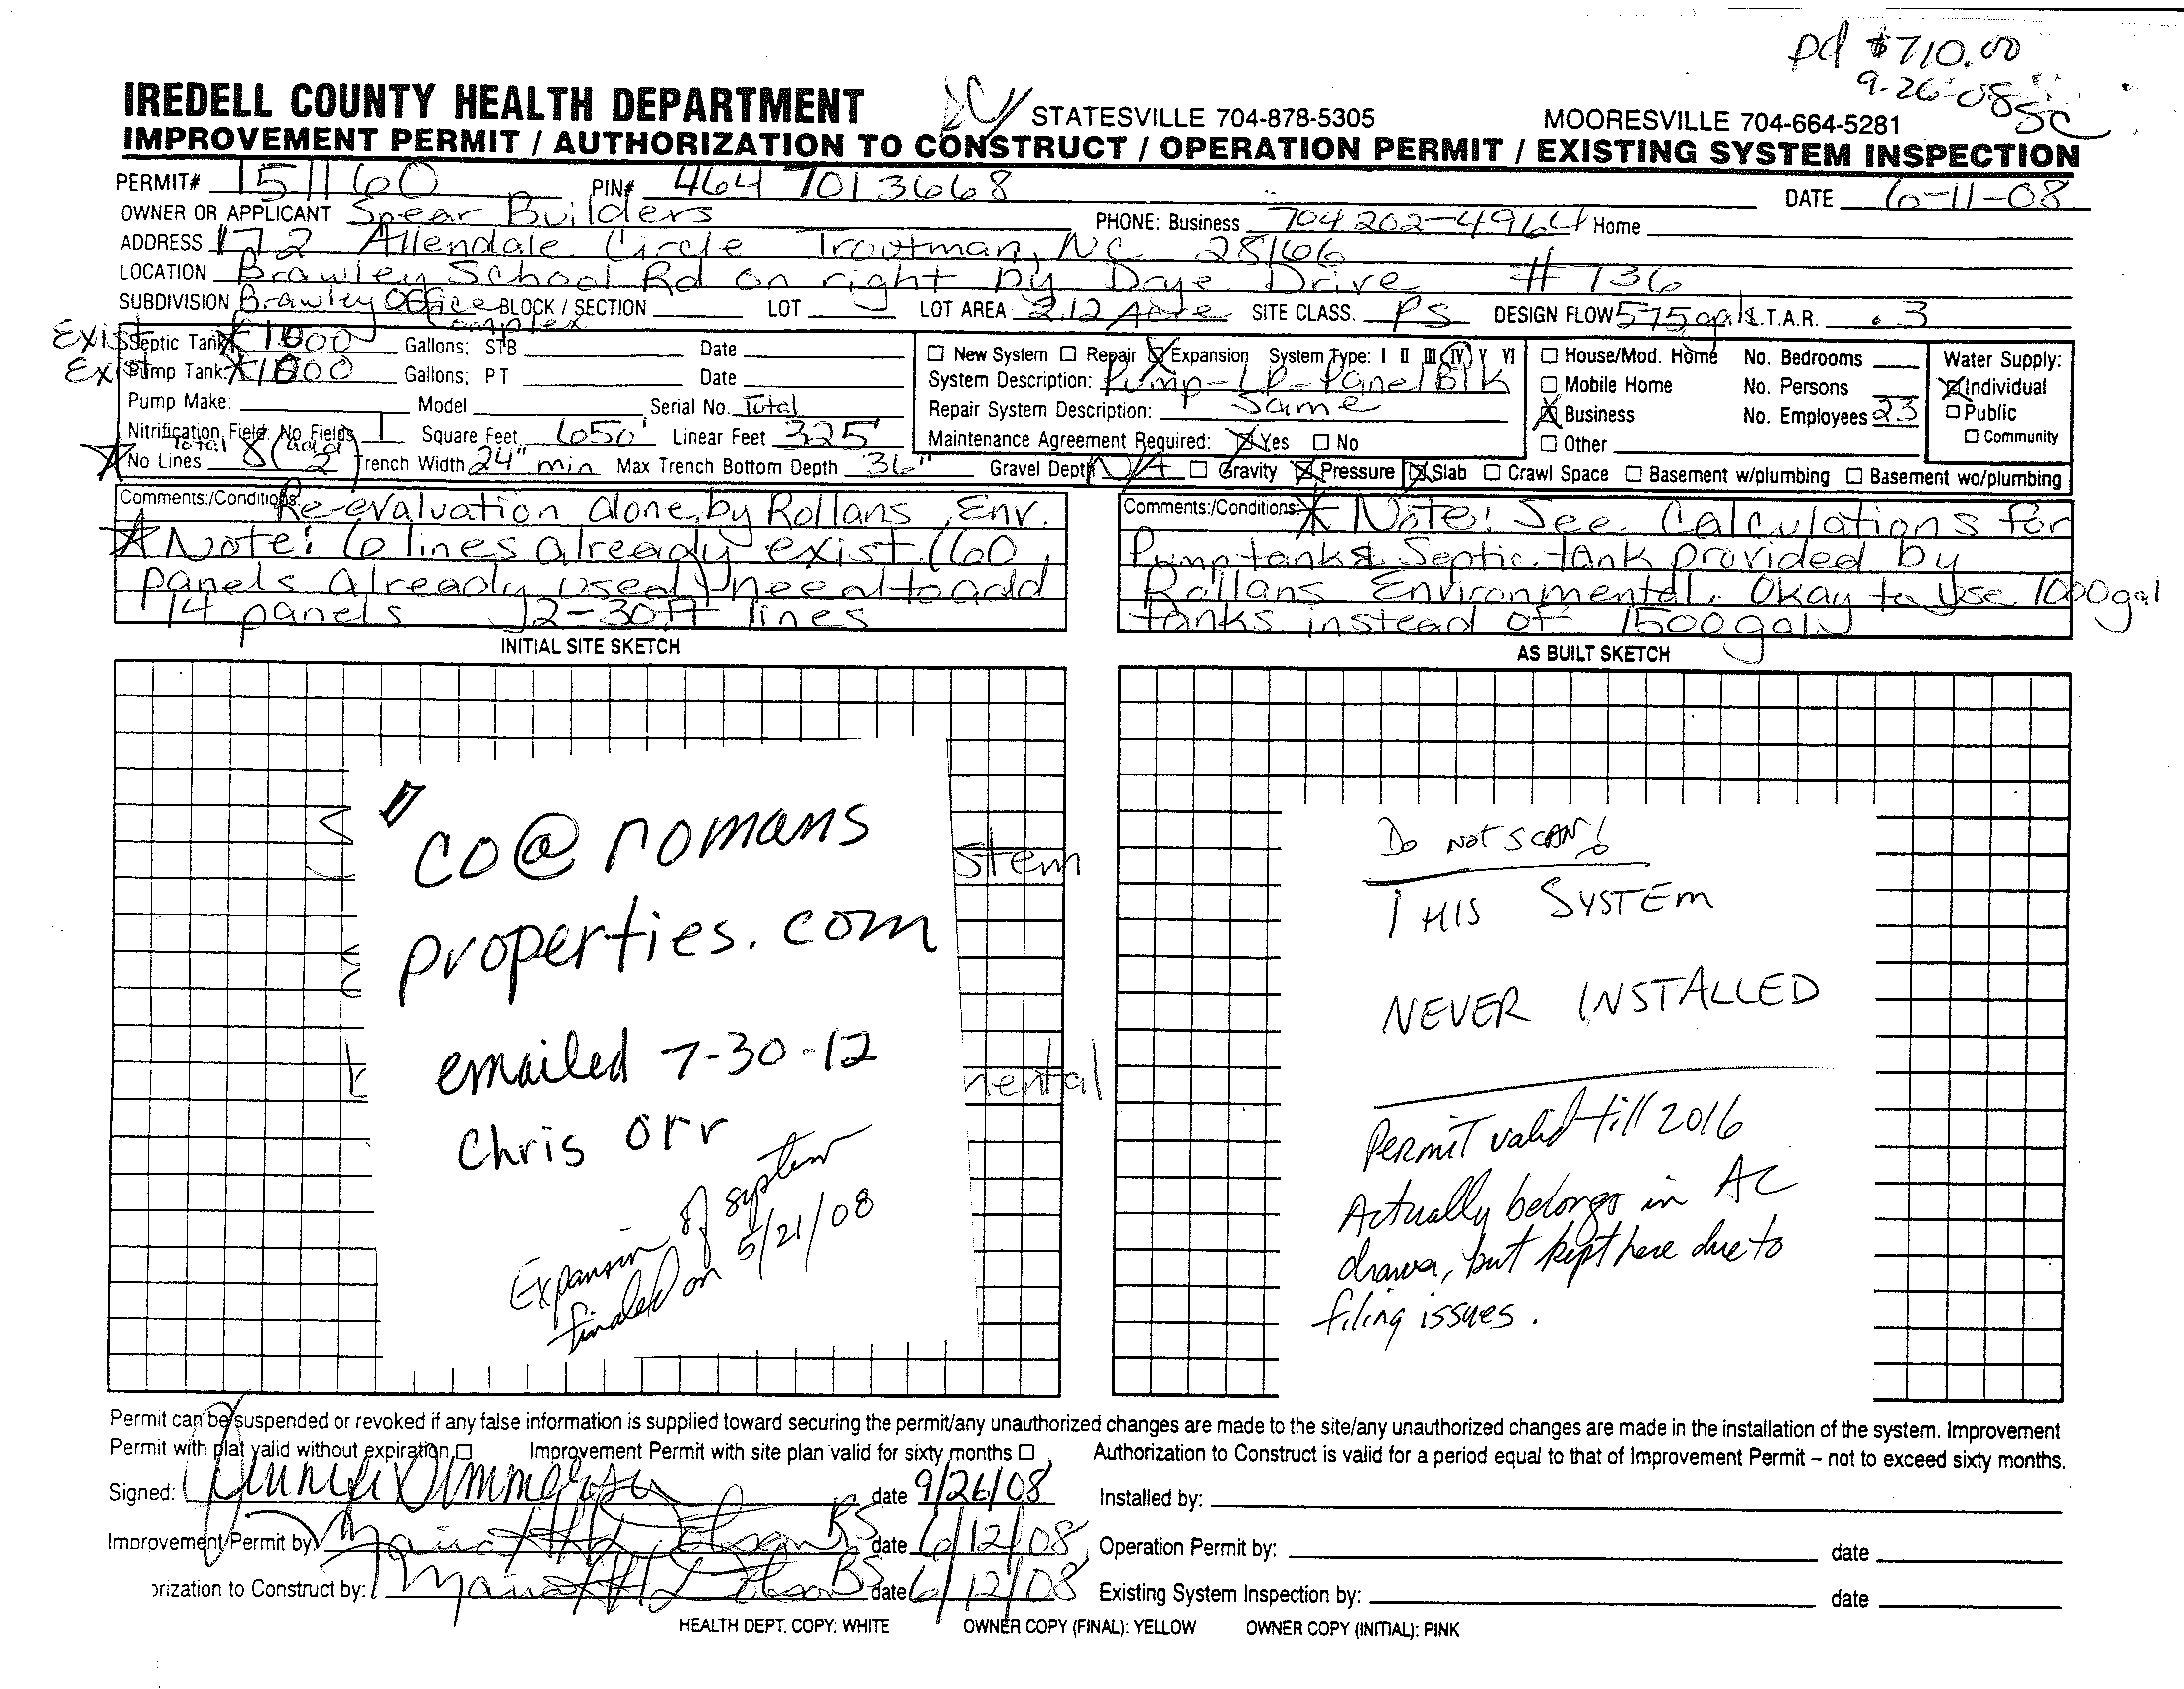 pd $710.00
9-26-08 SC
IREDELL COUNTY HEALTH DEPARTMENT
STATESVILLE 704-878-5305 MOORESVILLE 704-664-5281
IMPROVEMENT PERMIT / AUTHORIZATION TO CONSTRUCT / OPERATION PERMIT / EXISTING SYSTEM INSPECTION
PERMIT# 151160 PIN# 464 701 3668 DATE 6-11-08
OWNER OR APPLICANT Spear Builders PHONE: Business 704 202-4964 Home
ADDRESS 172 Allendale Circle Troutman, NC 28166
LOCATION Brawley School Rd on right by Daye Drive # 736
SUBDIVISION Brawley Office Complex BLOCK / SECTION LOT LOT AREA 2.12 Acre SITE CLASS. PS DESIGN FLOW 575 gals L.T.A.R. .3
Exist Septic Tank 1000 Gallons; STB Date
Exist Pump Tank: 1000 Gallons; PT Date
Pump Make: Model Serial No. Total
Nitrification Field: No Fields 1 Square Feet 650' Linear Feet 325'
No Lines total 8 (add 2) Trench Width 24" min Max Trench Bottom Depth 36" Gravel Depth N/A Gravity Pressure Slab Crawl Space Basement w/plumbing Basement wo/plumbing
New System Repair Expansion System Type: I II III IV V VI
System Description: Pump-LP-Panel Blk
Repair System Description: Same
Maintenance Agreement Required: Yes No
House/Mod. Home No. Bedrooms
Mobile Home No. Persons
Business No. Employees 23
Other
Water Supply:
Individual
Public
Community
Comments:/Conditions: Re-evaluation done by Rollans Env.
Note: 6 lines already exist (60
panels already used) need to add
14 panels 2-30ft lines
Comments:/Conditions: Note! See Calculations for
Pump tank & Septic tank provided by
Rollans Environmental. Okay to use 1000gal
tanks instead of 1500gal
INITIAL SITE SKETCH
AS BUILT SKETCH
co@romans
properties.com
emailed 7-30-12
Chris Orr
Expansion of system
finaled on 5/21/08
stem
mental
Do NOT SCAN!
THIS SYSTEM
NEVER INSTALLED
Permit valid till 2016
Actually belongs in AC
drawer, but kept here due to
filing issues.
Permit can be suspended or revoked if any false information is supplied toward securing the permit/any unauthorized changes are made to the site/any unauthorized changes are made in the installation of the system. Improvement
Permit with plat valid without expiration Improvement Permit with site plan valid for sixty months Authorization to Construct is valid for a period equal to that of Improvement Permit – not to exceed sixty months.
Signed: date 9/26/08 Installed by:
Improvement Permit by: RS date 6/12/08 Operation Permit by: date
orization to Construct by: RS date 6/12/08 Existing System Inspection by: date
HEALTH DEPT. COPY: WHITE OWNER COPY (FINAL): YELLOW OWNER COPY (INITIAL): PINK